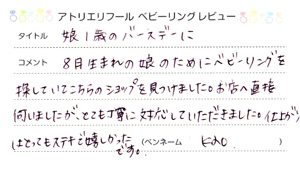 アトリエリフール ベビーリングレビュー
タイトル 娘1歳のバースデーに
コメント 8月生まれの娘のためにベビーリングを
探していてこちらのショップを見つけました。お店へ直接
伺いましたが、とても丁寧に対応していただきました。仕上がり
はとってもステキで嬉しかった
です。 (ペンネーム KAO )